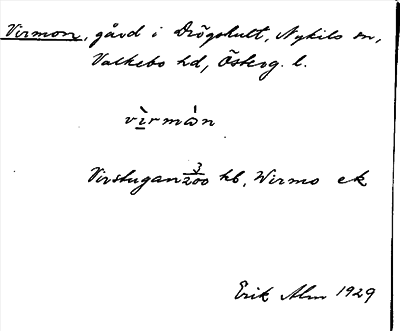 Virmon, gård i Drögshult, Nykils sn,
Valkebo hd, Österg. l.
vìrmȧ̀n
Virstugan 3/200 hb, Wirmo ek
Erik Alm 1929